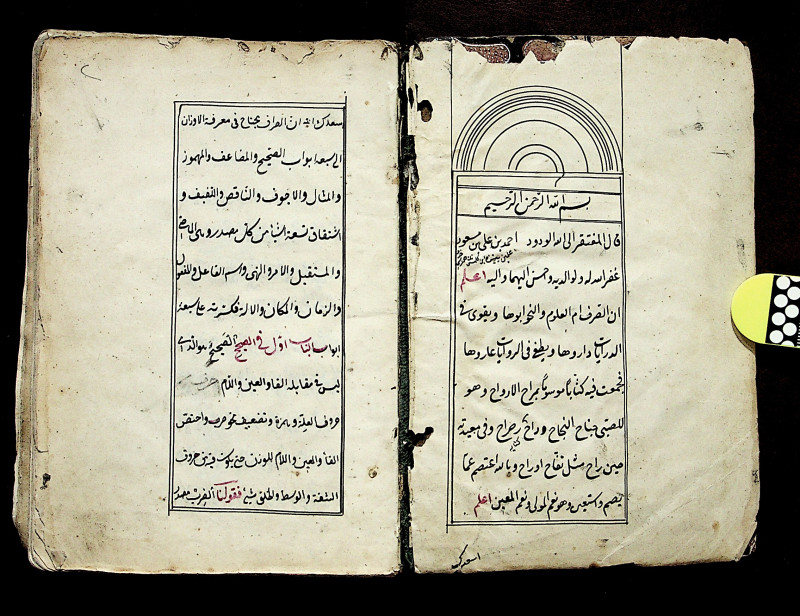 بسم الله الرحمن الرحيم
قال المفتقر الى الله الودود احمد بن على بن مسعود
غفر الله له ولوالديه وحسن اليهما واليه اعلم
ان الصرف ام العلوم والنحو ابوها ويقوى فى
الدرايات داروها ويطغى فى الروايات عاروها
فجمعت فيه كتابا موسوما بمراح الارواح وهو
للصبى جناح النجاح وراح رحراح وفى معدته
حين راح مثل تفاح او راح وبالله اعتصم عما
يصم واستعين وهو نعم المولى ونعم المعين اعلم
اسعدك
اسعدك الله ان الصراف يحتاج فى معرفة الاوزان
الى سبعة ابواب الصحيح والمضاعف والمهموز
والمثال والاجوف والناقص واللفيف و
اشتقاق تسعة اشيا من كل مصدر وهى الماضى
والمستقبل والامر والنهى واسم الفاعل والمفعول
والزمان والمكان والالة فكسرته على سبعة
ابواب الباب الاول فى الصحيح الصحيح هو الذى
ليس فى مقابلة الفا والعين واللام
حروف العلة وهمزة وتضعيف نحو ضرب واختص
الفا والعين واللام للوزن حتى يكون فيه من حروف
الشفة والوسط والحلق شئ فقولنا الضرب مصدر